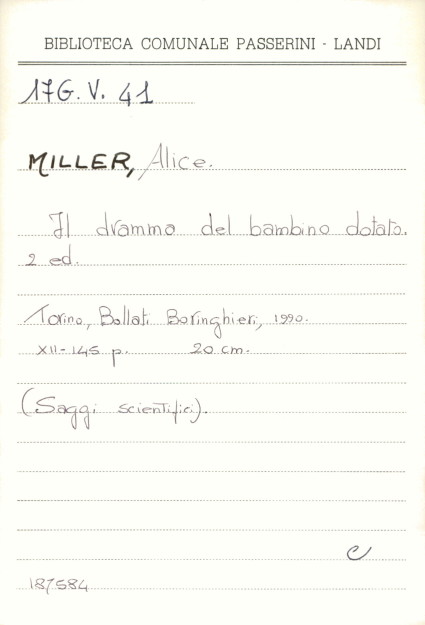 BIBLIOTECA COMUNALE PASSERINI - LANDI
17G. V. 41
MILLER, Alice.
Il dramma del bambino dotato.
2 ed.
Torino, Bollati Boringhieri, 1990.
XII-145 p. 20 cm.
(Saggi scientifici).
C
187584